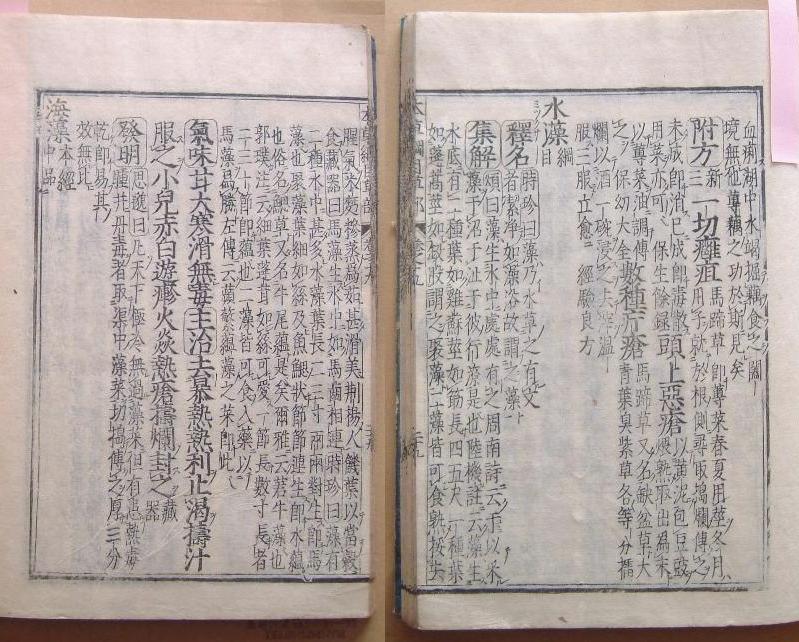 血痢湖中水竭掘藕食之闔
境無他蓴藕之功於斯見矣
附方新三一切癰疽馬蹄草即蓴菜春夏用莖冬月
用子就於根側尋取搗爛傅之
未成即消已成即毒散
用菜亦可保生餘錄頭上惡瘡以黃泥包豆豉
煨熟取出為末
以蓴菜油調傅
之保幼大全數種疔瘡馬蹄草又名缺盆草大
青葉臭紫草各等分擂
爛以酒一碗浸之去滓溫
服三服立愈經驗良方
水藻綱目
釋名時珍曰藻乃水草之有文
者潔淨如澡浴故謂之藻
集解頌曰藻生水中處處有之周南詩云于以采
藻于沼于沚于彼行潦是也陸機註云藻生
水底有二種葉如雞蘇莖如筯長四五尺一種葉
如蓬蒿莖如釵股謂之聚藻二藻皆可食熟挼去
腥氣米麪糝蒸為茹甚滑美荆揚人饑荒以當穀
食藏器曰馬藻生水中如馬齒相連時珍曰藻有
二種水中甚多水藻葉長二三寸兩兩對生即馬
藻也聚藻葉細如絲及魚鰓狀節節連生即水蘊
也俗名鰓草又名牛尾蘊是矣爾雅云莙牛藻也
郭璞注云細葉蓬茸如絲可愛一節長數寸長者
二三十節即蘊也二藻皆可食入藥以
馬藻為勝左傳云蘋蘩蘊藻之菜即此
氣味甘大寒滑無毒主治去暴熱熱利止渴擣汁
服之小兒赤白遊瘮火焱熱瘡擣爛封之藏器
發明思邈曰凡天下極冷無過藻菜但有患熱毒
腫并丹毒者取渠中藻菜切搗傅之厚三分
乾即易其
效無比
海藻本經中品